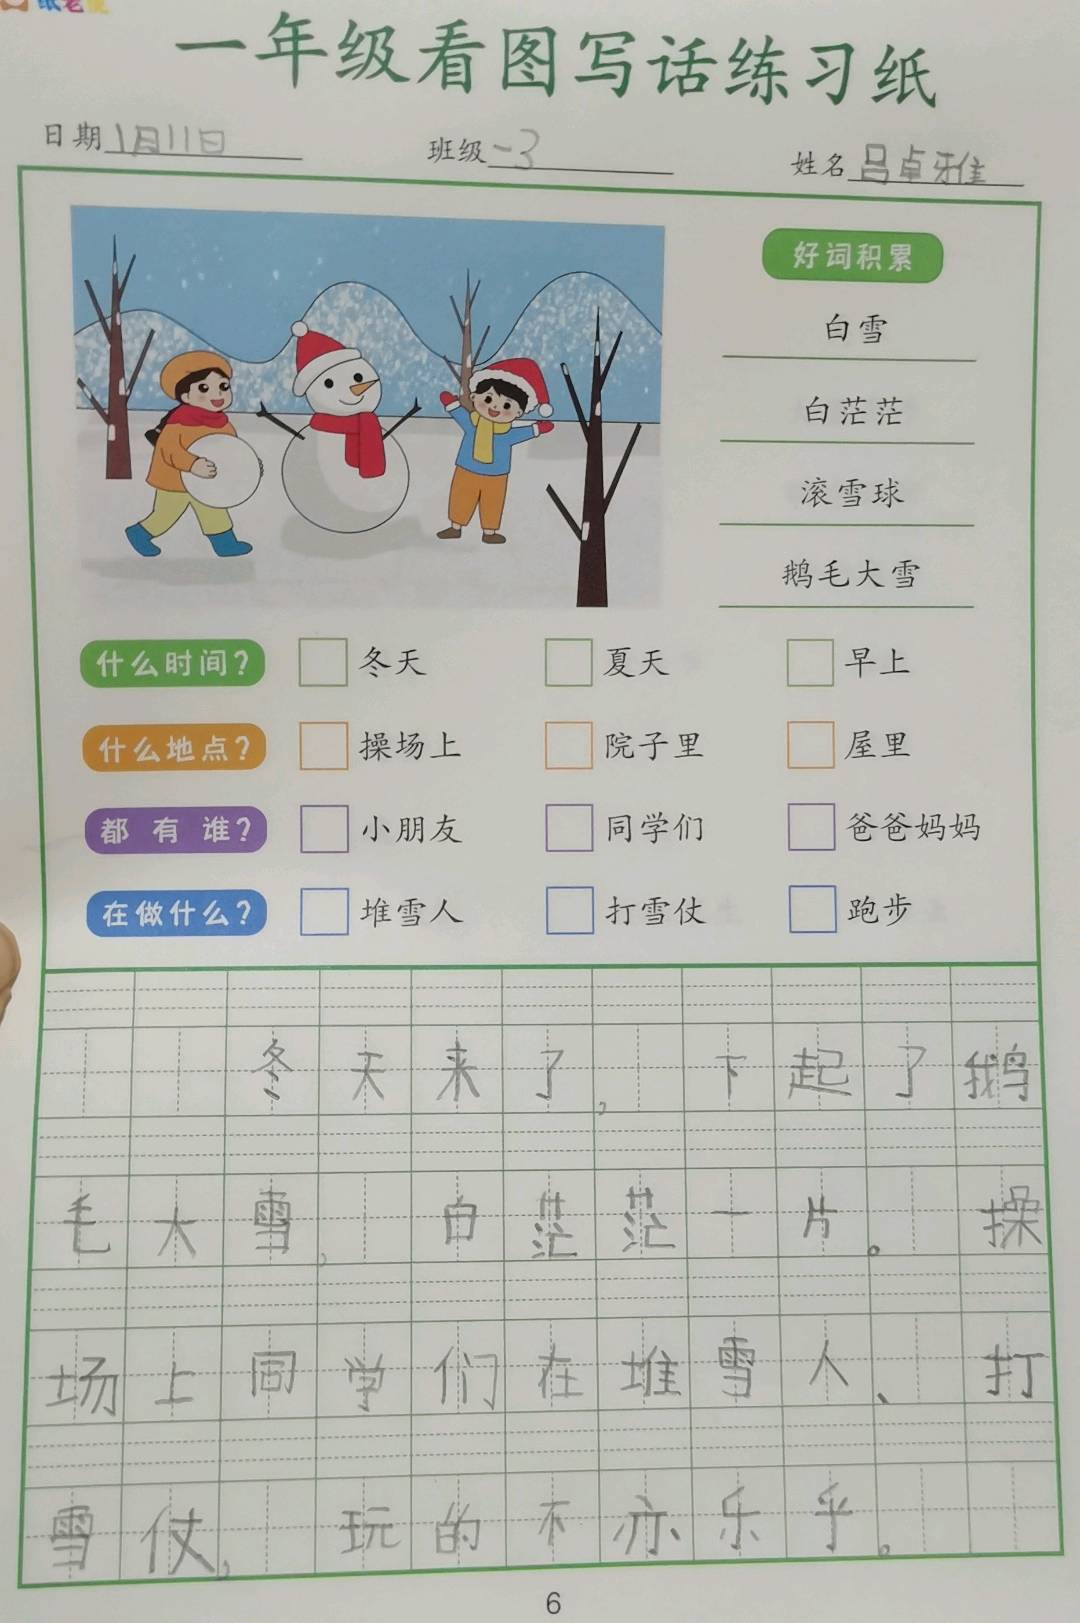 一年级看图写话练习纸
日期 1月11日 班级 一3 姓名 吕卓雅
好词积累
白雪
白茫茫
滚雪球
鹅毛大雪
什么时间? 冬天 夏天 早上
什么地点? 操场上 院子里 屋里
都有谁? 小朋友 同学们 爸爸妈妈
在做什么? 堆雪人 打雪仗 跑步
冬天来了,下起了鹅
毛大雪,白茫茫一片。操
场上同学们在堆雪人、打
雪仗,玩的不亦乐乎。
6